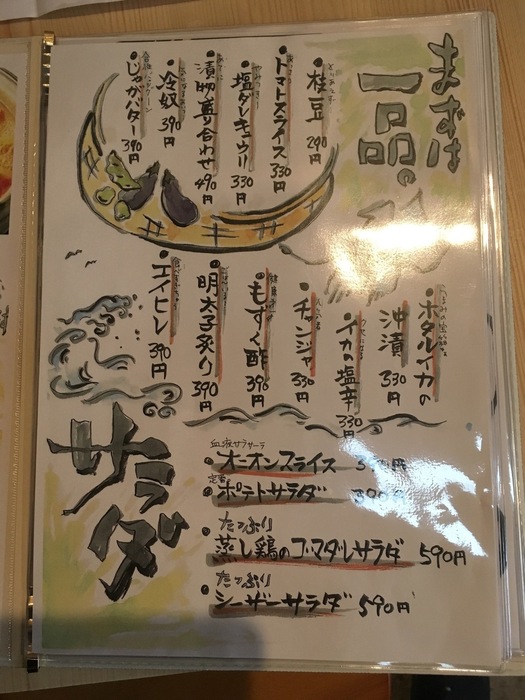 まずは
一品の
とりあえず
枝豆
290円
トマトスライス
330円
塩ダレキュウリ
330円
漬物盛り合わせ
490円
冷奴
390円
じゃがバター
390円
ホタルイカの
沖漬
330円
イカの塩辛
330円
チャンジャ
330円
もずく酢
390円
明太子炙り
390円
エイヒレ
390円
サラダ
血液サラサーラ
オニオンスライス
定番
ポテトサラダ
たっぷり
蒸し鶏のゴマダレサラダ 590円
たっぷり
シーザーサラダ 590円